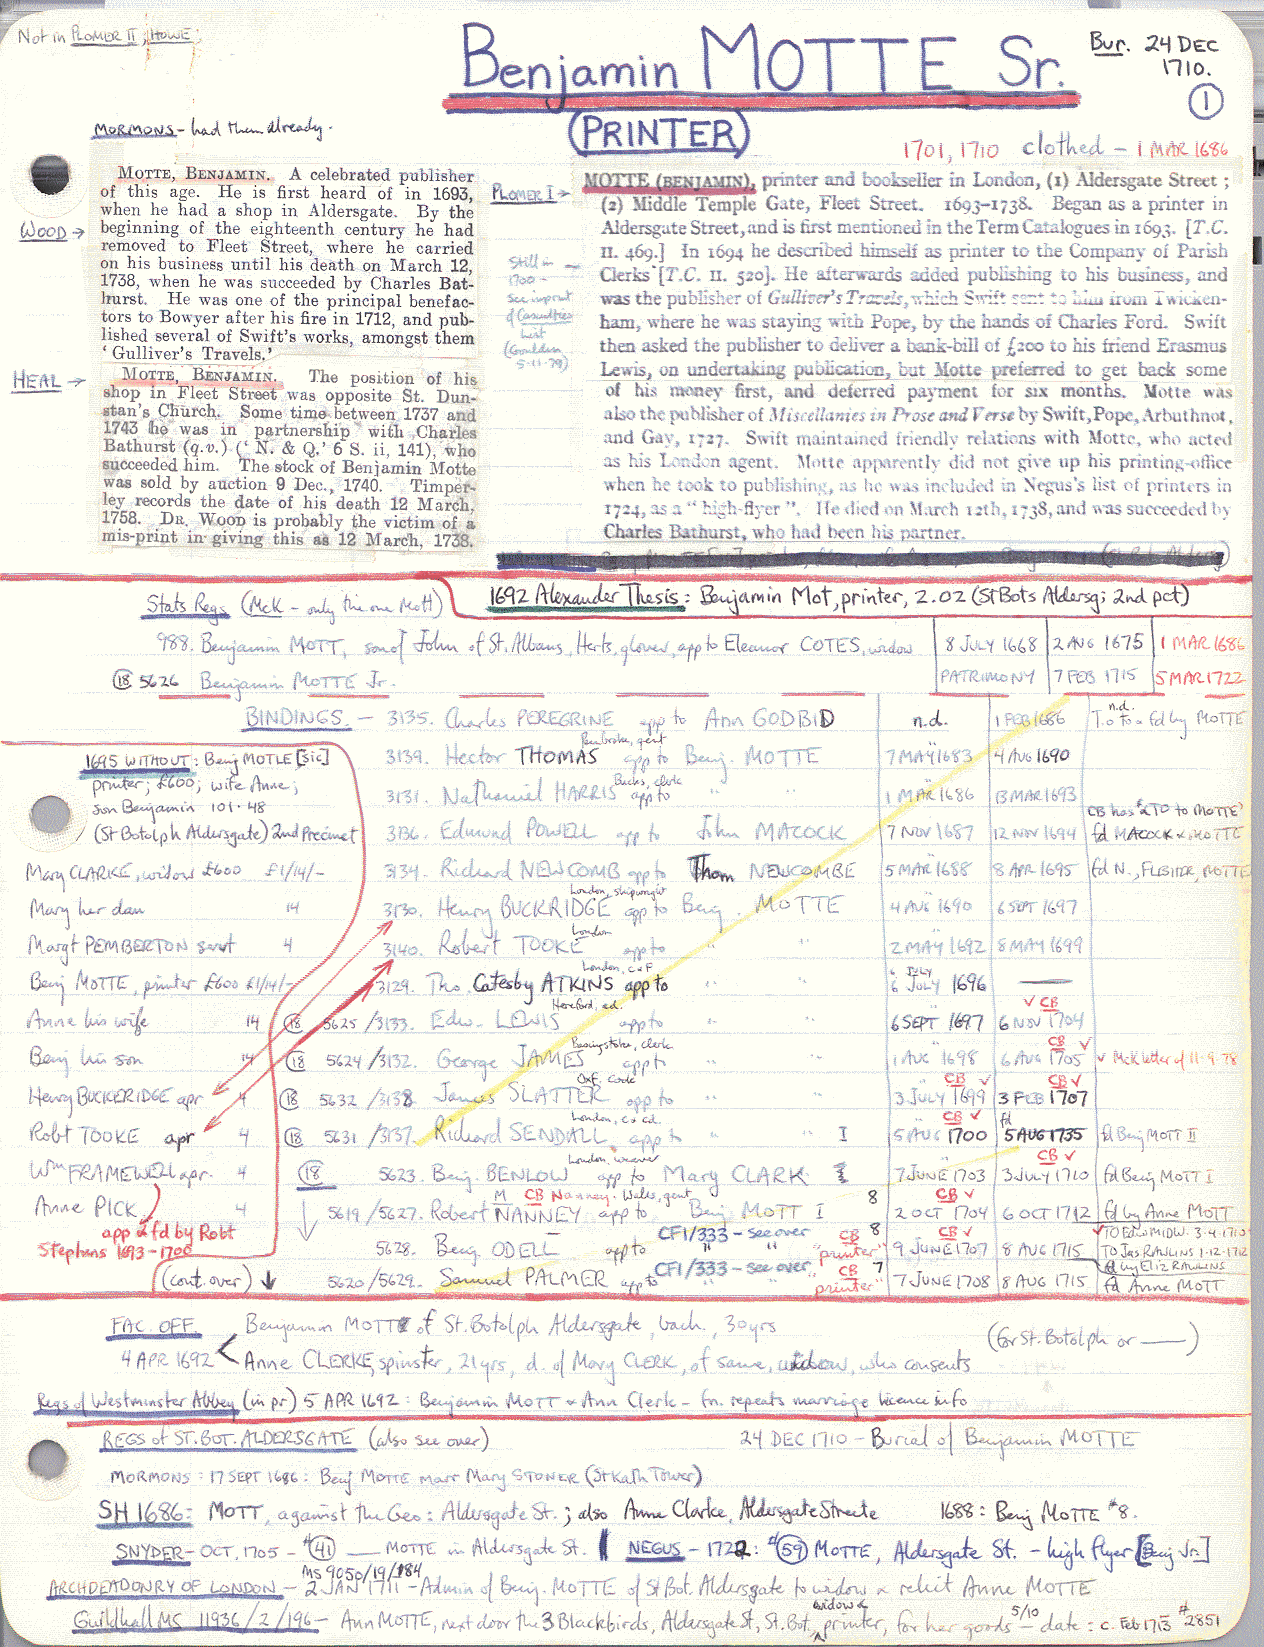 Not in PLOMER II; HOWE:
Benjamin MOTTE Sr.
Bur. 24 DEC
1710.
1
(PRINTER)
MORMONS - had them already.
1701, 1710 clothed - 1 MAR 1686
WOOD →
MOTTE, BENJAMIN. A celebrated publisher
of this age. He is first heard of in 1693,
when he had a shop in Aldersgate. By the
beginning of the eighteenth century he had
removed to Fleet Street, where he carried
on his business until his death on March 12,
1738, when he was succeeded by Charles Bat-
hurst. He was one of the principal benefac-
tors to Bowyer after his fire in 1712, and pub-
lished several of Swift's works, amongst them
'Gulliver's Travels.'
HEAL →
MOTTE, BENJAMIN. The position of his
shop in Fleet Street was opposite St. Dun-
stan's Church. Some time between 1737 and
1743 he was in partnership with Charles
Bathurst (q.v.) ('N. & Q.' 6 S. ii, 141), who
succeeded him. The stock of Benjamin Motte
was sold by auction 9 Dec., 1740. Timper-
ley records the date of his death 12 March,
1758. DR. WOOD is probably the victim of a
mis-print in giving this as 12 March, 1738.
PLOMER I →
Still in
1700 -
see imprint
of Casualties
List
(Goulden
5-11-79)
MOTTE (BENJAMIN), printer and bookseller in London, (1) Aldersgate Street;
(2) Middle Temple Gate, Fleet Street. 1693-1738. Began as a printer in
Aldersgate Street, and is first mentioned in the Term Catalogues in 1693. [T.C.
II. 469.] In 1694 he described himself as printer to the Company of Parish
Clerks [T.C. II. 520]. He afterwards added publishing to his business, and
was the publisher of Gulliver's Travels, which Swift sent to him from Twicken-
ham, where he was staying with Pope, by the hands of Charles Ford. Swift
then asked the publisher to deliver a bank-bill of £200 to his friend Erasmus
Lewis, on undertaking publication, but Motte preferred to get back some
of his money first, and deferred payment for six months. Motte was
also the publisher of Miscellanies in Prose and Verse by Swift, Pope, Arbuthnot,
and Gay, 1727. Swift maintained friendly relations with Motte, who acted
as his London agent. Motte apparently did not give up his printing-office
when he took to publishing, as he was included in Negus's list of printers in
1724, as a "high-flyer". He died on March 12th, 1738, and was succeeded by
Charles Bathurst, who had been his partner.
Stats Regs (McK - only the one Mott)
1692 Alexander Thesis: Benjamin Mot, printer, 2.02 (St Bots Aldersg; 2nd pct)
988. Benjamin MOTT, son of John of St. Albans, Herts, glover, app to Eleanor COTES, widow 8 JULY 1668 2 AUG 1675 1 MAR 1686
18 5626 Benjamin MOTTE Jr. PATRIMONY 7 FEB 1715 5 MAR 1722
BINDINGS - 3135. Charles PEREGRINE app to Ann GODBID n.d. 1 FEB 1686 n.d. T.o to & fd by MOTTE
1695 WITHOUT: Benj MOTLE [sic]
printer; £600; wife Anne;
son Benjamin 101.48
(St Botolph Aldersgate) 2nd Precinct
Mary CLARKE, widow £600 £1/14/-
Mary her dau 14
Margt PEMBERTON servt 4
Benj MOTTE, printer £600 £1/14/-
Anne his wife 14
Benj his son 14
Henry BUCKERIDGE apr 4
Robt TOOKE apr 4
Wm FRAMEWELL apr. 4
Anne PICK 4
app & fd by Robt
Stephens 1693-1700
(cont. over) ↓
Pembroke, gent
3139. Hector THOMAS app to Benj. MOTTE 7 MAY 1683 4 AUG 1690
Bucks, clerk
3131. Nathaniel HARRIS app to " " 1 MAR 1686 13 MAR 1693
CB has "& TO to MOTTE"
3136. Edmund POWELL app to John MACOCK 7 NOV 1687 12 NOV 1694 fd MACOCK & MOTTE
3134. Richard NEWCOMB app to Thom NEWCOMBE 5 MAR 1688 8 APR 1695 fd N., FLESHER, MOTTE
London, shipwright
3130. Henry BUCKRIDGE app to Benj. MOTTE 4 AUG 1690 6 SEPT 1697
London
3140. Robert TOOKE app to " " 2 MAY 1692 8 MAY 1699
London, C&F
3129. Tho. Catesby ATKINS app to " " 6 JULY 1696
Hereford, ed.
18 5625/3133. Edw. LEWIS app to " " 6 SEPT 1697 ✓ CB 6 NOV 1704
Basingstoke, clerk
18 5624/3132. George JAMES app to " " 1 AUG 1698 CB ✓ 6 AUG 1705 ✓ McK letter of 11.9.78
Oxf, cook
18 5632/3138 James SLATTER app to " " CB ✓ 3 JULY 1699 CB ✓ 3 FEB 1707
London
18 5631/3137. Richard SENDALL app to " " I CB ✓ 5 AUG 1700 fd 5 AUG 1735 fd Benj MOTT II
London, weaver
18 5623. Benj. BENLOW app to Mary CLARK 7 JUNE 1703 CB ✓ 3 JULY 1710 fd Benj MOTT I
M CB Nanney. Wales, gent
5619/5627. Robert NANNEY app to Benj MOTT I 8 CB ✓ 2 OCT 1704 6 OCT 1712 fd by Anne MOTT
CF1/333 - see over
5628. Benj. ODELL app to " " CB 8 "printer" 9 JUNE 1707 CB ✓ 8 AUG 1715 ✓ TO Edw MIDW. 3.4.1710
TO Jas RAWLINS 1.12.1712
fd by Eliz RAWLINS
CF1/333 - see over
5620/5629. Samuel PALMER app to " " CB 7 printer" 7 JUNE 1708 8 AUG 1715 fd Anne MOTT
FAC. OFF. Benjamin MOTT of St. Botolph Aldersgate, bach., 30 yrs (for St. Botolph or ——)
4 APR 1692 < Anne CLERKE, spinster, 21 yrs, d. of Mary CLERK, of same, widow, who consents
Regs of Westminster Abbey (in pr) 5 APR 1692: Benjamin MOTT & Ann Clerk - fn. repeats marriage licence info
REGS of ST. BOT. ALDERSGATE (also see over) 24 DEC 1710 - Burial of Benjamin MOTTE
MORMONS: 17 SEPT 1686: Benj MOTTE marr Mary STONER (St Kath Tower)
SH 1686: MOTT, against the Geo: Aldersgate St.; also Anne Clarke, Aldersgate Streete 1688: Benj MOTTE #8.
SNYDER - OCT, 1705 - #41 —— MOTTE in Aldersgate St. NEGUS - 1722: #59 MOTTE, Aldersgate St. - high flyer [Benj Jr.]
MS 9050/19/184
ARCHDEADONRY OF LONDON - 2 JAN 1711 - Admin of Benj. MOTTE of St Bot. Aldersgate to widow & relict Anne MOTTE
Guildhall MS 11936/2/196 - Ann MOTTE, next door the 3 Blackbirds, Aldersgate St, St. Bot., widow & printer, for her goods 5/10 - date: c. Feb 1713 #2851